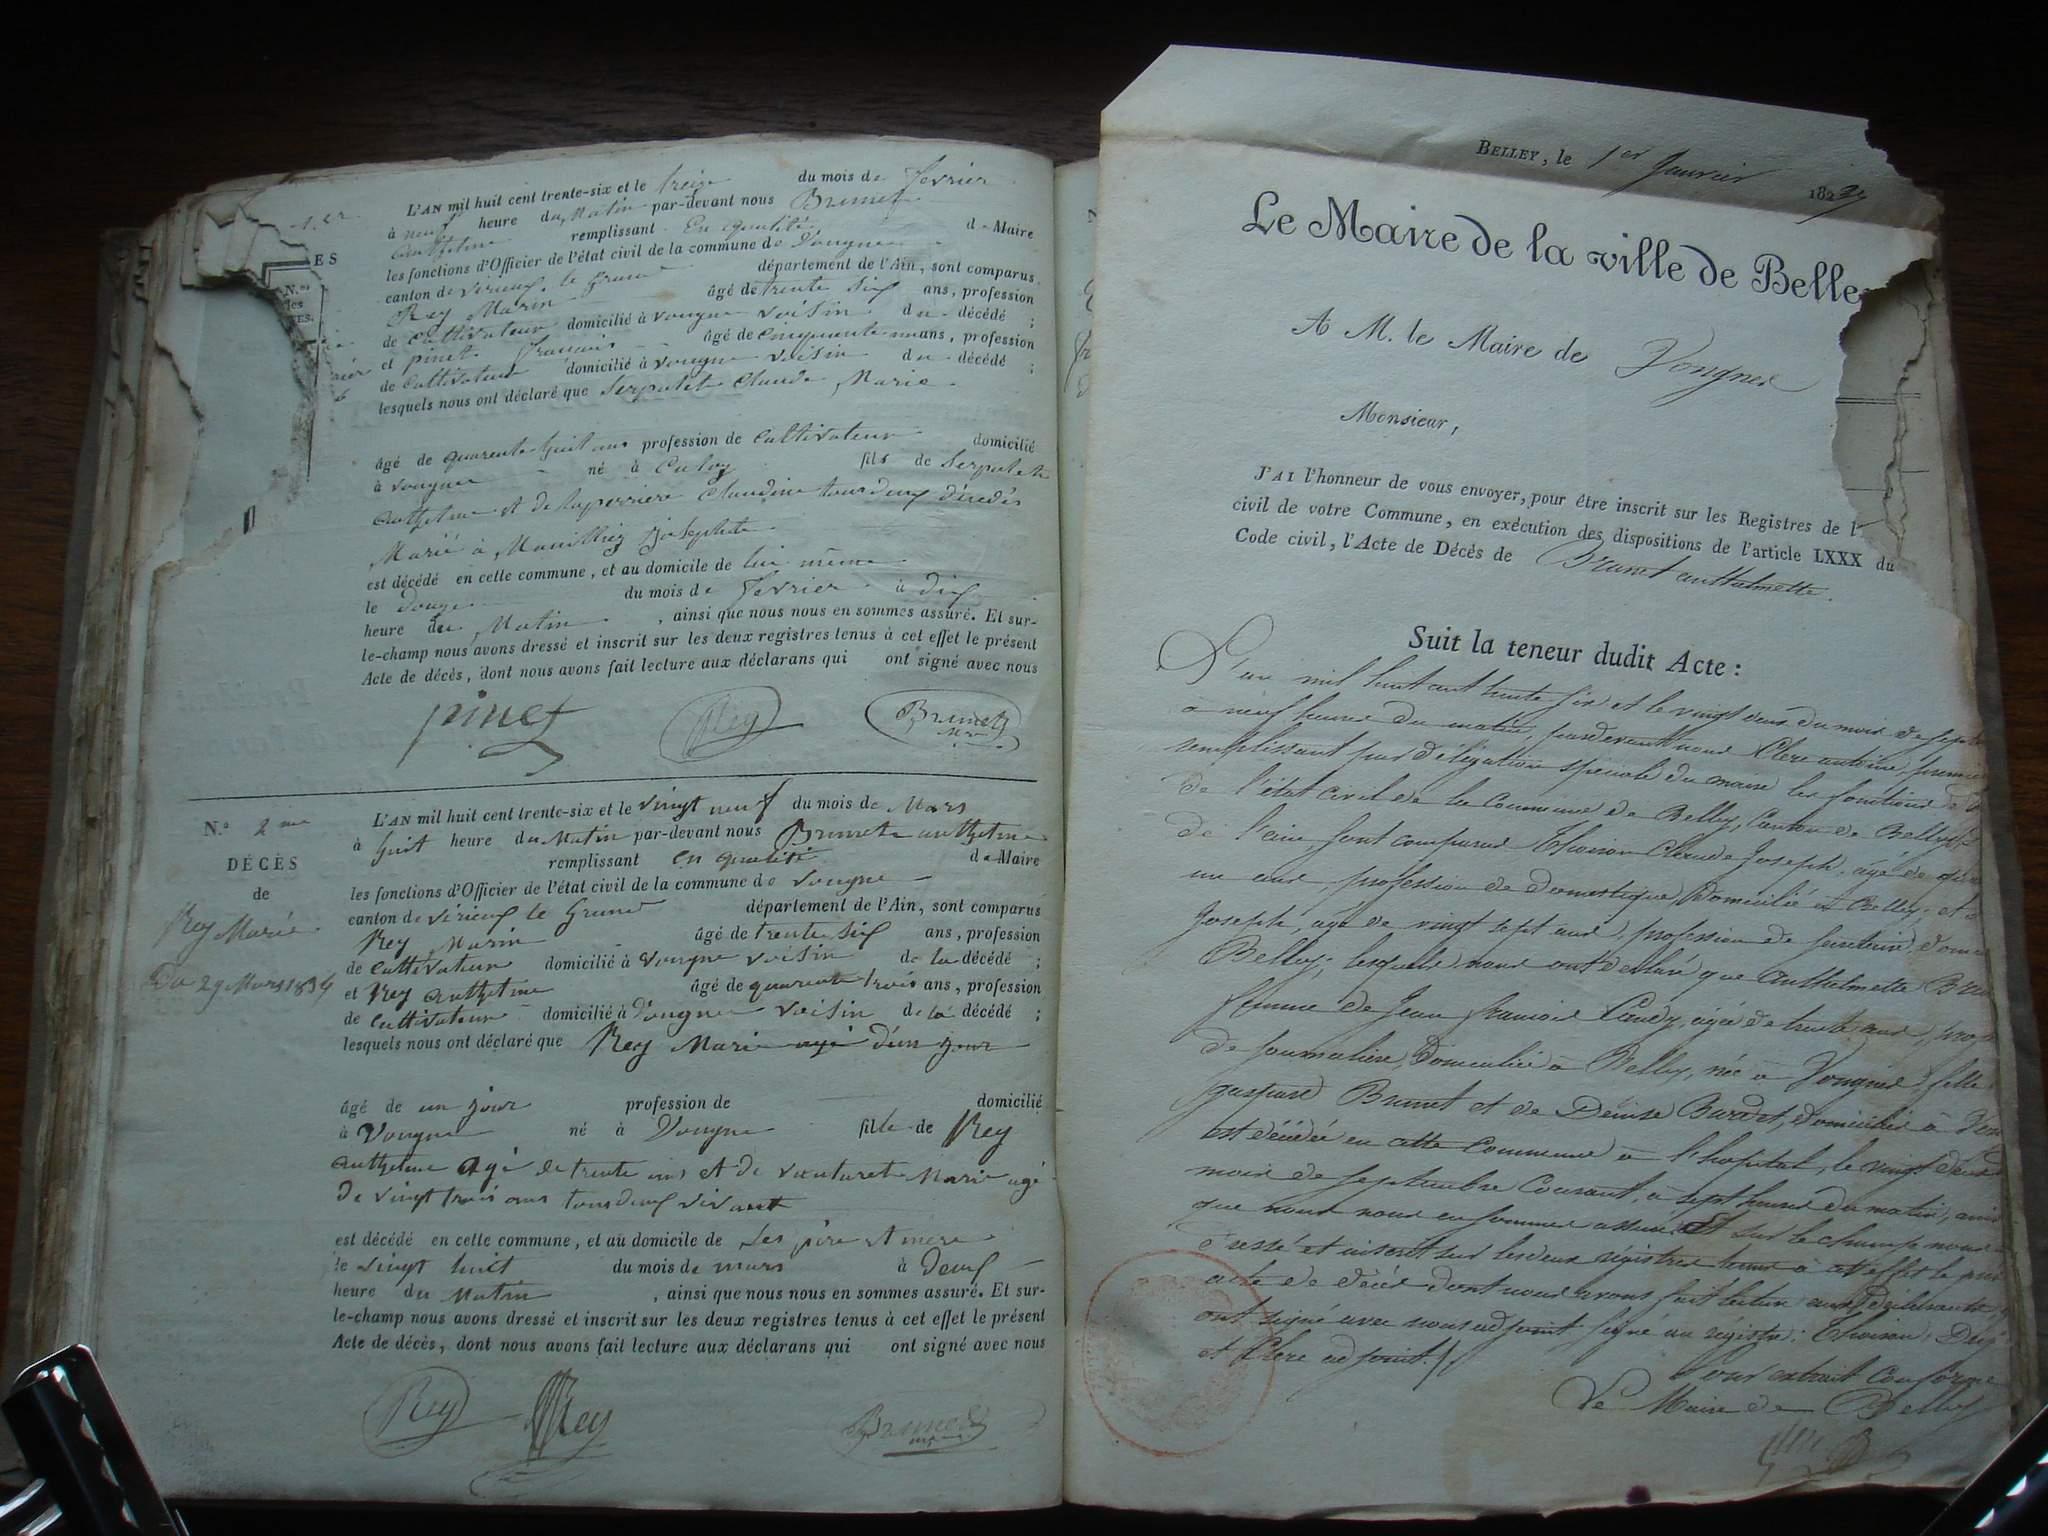 1.er
ES
N.os
des
L'AN mil huit cent trente-six et le treize du mois de fevrier
à neuf heure du Matin par-devant nous Brunet
Anthelme remplissant En qualité de Maire
les fonctions d'Officier de l'état civil de la commune de Vongne
canton de virieux le Grand département de l'Ain, sont comparus
Rey Marin âgé de trente six ans, profession
de Cultivateur domicilié à vongne voisin du décédé ;
et pinet françois âgé de Cinquante ans, profession
de Cultivateur domicilié à vongne voisin du décédé ;
lesquels nous ont déclaré que Serpolet Claude Marie
âgé de quarente huit ans profession de Cultivateur domicilié
à vongne né à Culoz fils de Serpolet
anthelme et de laperriere Claudine tous deux décédés
Marié à Josephte
est décédé en cette commune, et au domicile de lui même
le douze du mois de fevrier à dix
heure du Matin , ainsi que nous nous en sommes assuré. Et sur-
le-champ nous avons dressé et inscrit sur les deux registres tenus à cet effet le présent
Acte de décès, dont nous avons fait lecture aux déclarans qui ont signé avec nous
pinet Rey Brunet
N.o 2me
DÉCÈS
de
Rey Marie
Du 29 Mars 1836
L'AN mil huit cent trente-six et le vingt neuf du mois de Mars
à huit heure du Matin par-devant nous Brunet anthelme
remplissant en qualité de Maire
les fonctions d'Officier de l'état civil de la commune de vongne
canton de virieux le Grand département de l'Ain, sont comparus
Rey Marin âgé de trente six ans, profession
de Cultivateur domicilié à vongne voisin de la décédé ;
et Rey anthelme âgé de quarente trois ans, profession
de Cultivateur domicilié à Vongne voisin de la décédé ;
lesquels nous ont déclaré que Rey Marie agé d'un jour
âgé de un jour profession de domicilié
à Vongne né à Vongne fille de Rey
anthelme agé de trente ans et de Marie agé
de vingt trois ans tous deux vivant
est décédé en cette commune, et au domicile de ses père et mère
le vingt huit du mois de mars à deux
heure du Matin , ainsi que nous nous en sommes assuré. Et sur-
le-champ nous avons dressé et inscrit sur les deux registres tenus à cet effet le présent
Acte de décès, dont nous avons fait lecture aux déclarans qui ont signé avec nous
Rey Rey Brunet
BELLEY, le 1er Janvier 182
Le Maire de la ville de Belle
A M. le Maire de Vongnes
Monsieur,
J'AI l'honneur de vous envoyer, pour être inscrit sur les Registres de l'
civil de votre Commune, en exécution des dispositions de l'article LXXX du
Code civil, l'Acte de Décès de Brunet anthelmette.
Suit la teneur dudit Acte :
L'an mil huit cent trente six et le vingt deux du mois de sept
à neuf heures du matin, pardevant nous Clerc antoine, premier
remplissant par délégation spéciale du maire les fonctions d
de l'état civil de la Commune de Belley, Canton de Belley
de l'ain, sont comparus Thoison Claude Joseph, agé de
un ans, profession de domestique, Domicilié à Belley, et
Joseph, agé de vingt sept ans, profession de secretaire, dom
Belley; lesquels nous ont déclaré que anthelmette Bru
femme de Jean francois agée de trente ans, prof
de journaliere, Domiciliée à Belley, née à Vongnes, fille
gaspard Brunet et de Denise Burdet, domiciliés à Von
est décédée en cette Commune à l'hopital, le vingt deux
mois de septembre Courant, à sept heures du matin, ainsi
que nous nous en sommes assuré. Et sur le champ nous
dressé et inscrit sur les deux régistres tenus à cet effet le pré
acte de décès dont nous avons fait lecture aux déclarants
ont signé avec nous adjoint signé au régistre: Thoison,
et Clerc adjoint./.
Pour extrait Conforme
Le Maire de Belley